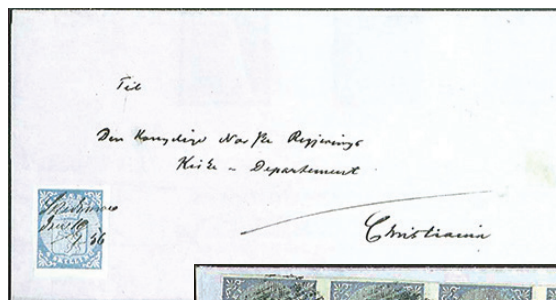 Til
Den Kongelige Norske Regjerings
Kirke - Departement
Christiania
56